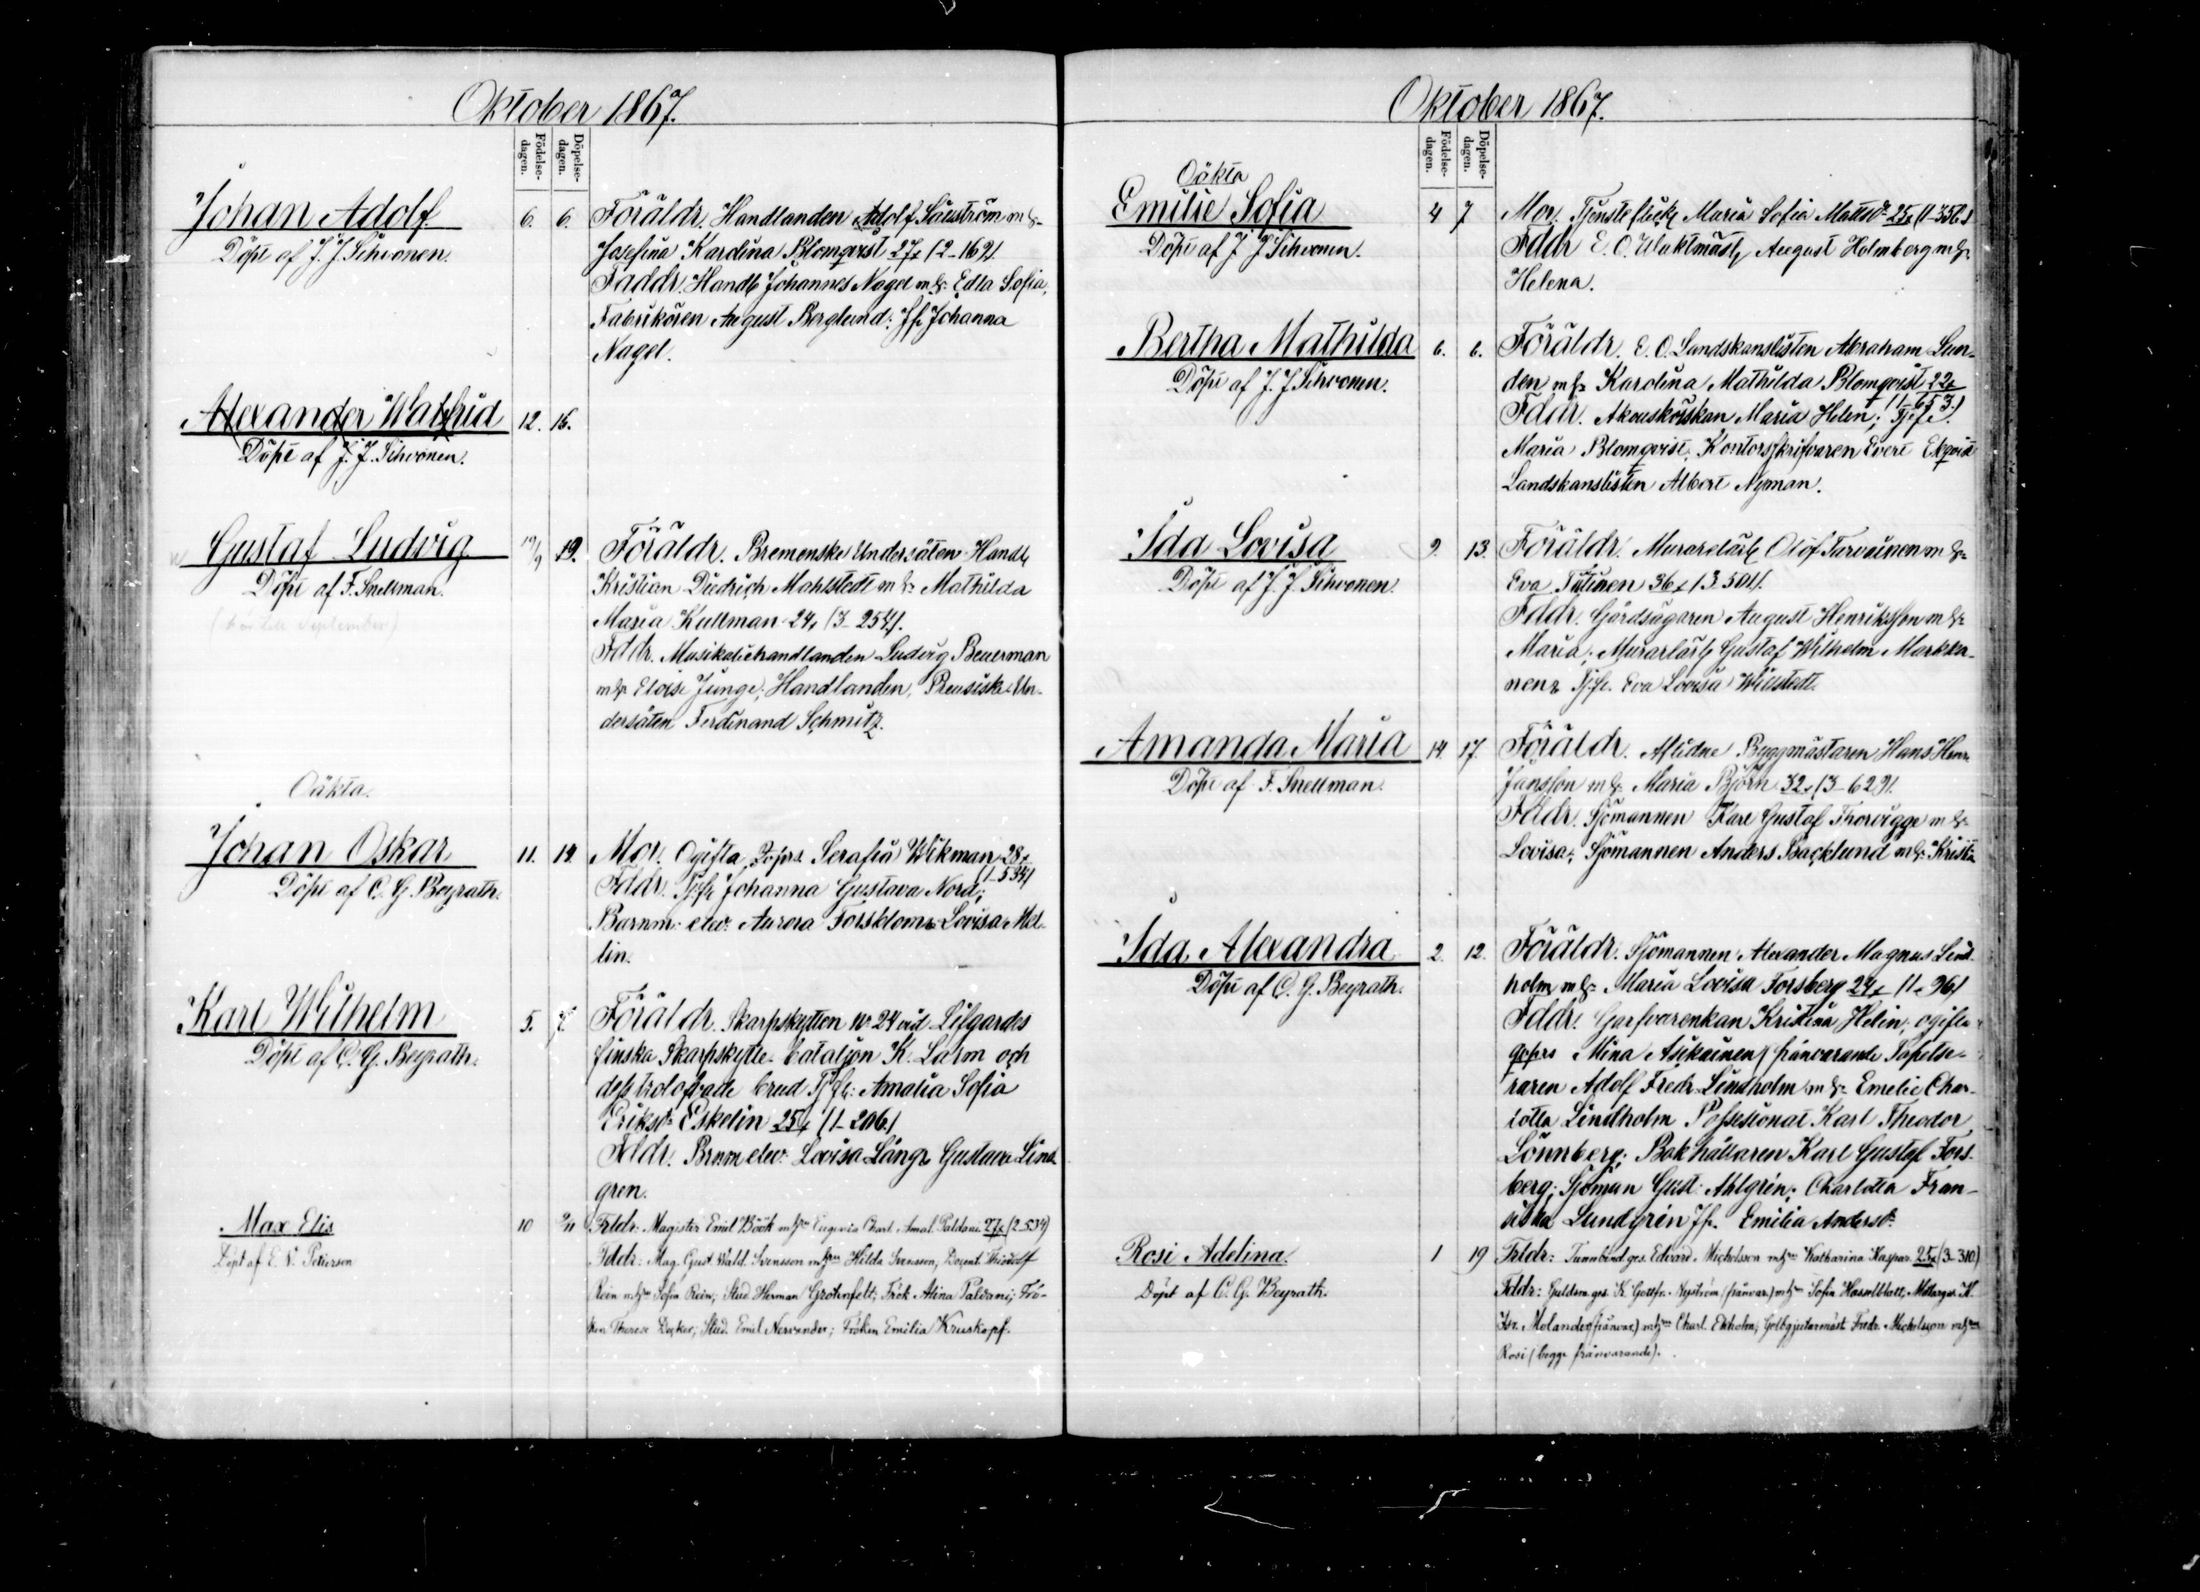 Oktober 1867.
Födelse-
dagen.
Döpelse-
dagen.
Johan Adolf
Döpt af J. J. Sihvonen.
6. 6.
Föräldr. Handlanden Adolf Säfström m h:
Josefina Karolina Blomqvist 27 (2-162).
Faddr. Handl Johannes Nagel m h: Edla Sofia,
Fabrikören August Berglund; Jfr Johanna
Nagel.
Alexander Walfrid
Döpt af J. J. Sihvonen.
12. 16.
Gustaf Ludvig
Döpt af F. Snellman.
(September)
19/9 19.
Föräldr. Bremenske Undersåten Handl
Kristian Diedrich Mahlstedt m h: Mathilda
Maria Kullman 24, (3-254).
Fddr. Musikaliehandlanden Ludvig Beuerman
m h: Eloise Junge; Handlanden, Preusiske Un-
dersåten Ferdinand Schmitz.
Oäkta.
Johan Oskar
Döpt af C. G. Beyrath.
11. 14.
Mor. Ogifta Serafia Wikman 28
(1-534)
Fddr. Johanna Gustava Nord;
Barnm: elev: Aurora Forsblom Lovisa Mel-
lin.
Karl Wilhelm
Döpt af C. G. Beyrath.
5. 7.
Föräldr. Skarpskytten No 24 vid Lifgardes
finska Skarpskytte-bataljon K. Larm och
dess trolofvade brud Amalia Sofia
Eriksdr Eskelin 25 (1-206)
Fddr. Brnm elev: Lovisa Läng Gustava Lind
gren.
Max Elis
Döpt af E. V. Peterson
10
Frldr: Magister Emil Böök m h Eugenia Charl. Amal. Paldani 27 (2-534)
Fddr: Mag. Gust. Wald. Svensson m h Hilda Svensson, Docent Theodolf
Rein m h Sofia Rein; Stud Herman Grotenfelt; Frök Alina Paldani; Frö-
ken Therese Decker; Stud. Emil Nervander; Fröken Emilia Kruskopf.
Oktober 1867.
Födelse-
dagen.
Döpelse-
dagen.
Oäkta
Emilie Sofia
Döpt af J. J. Sihvonen.
4 7
Mor. Tjensteflick Maria Sofia Mattsdr 25 (1-356)
Fddr E. O. Waktmäst August Holmberg m h:
Helena.
Bertha Mathilda
Döpt af J. J. Sihvonen.
6. 6.
Föräldr. E. O. Landskanslisten Abraham Lun-
den m h: Karolina Mathilda Blomqvist 22
(1-653.)
Fddr. Akouskörskan Maria Helen;
Maria Blomqvist, Kontorsskrifvaren Evert Ekqvist
Landskanslisten Albert Nyman.
Ida Lovisa
Döpt af J. J. Sihvonen.
9. 13.
Föräldr. Murarelärl Olof Tarvainen m h:
Eva Tytinen 36 (3-501).
Fddr. Gårdsägaren August Henriksson m h:
Maria; Murarlärl Gustaf Wilhelm Markka-
nen Eva Lovisa Willstedt.
Amanda Maria
Döpt af F. Snellman.
14. 17.
Föräldr. Aflidne Byggmästaren Hans Henr
Jansson m h: Maria Björn 32, (3-629).
Fddr. Sjömannen Karl Gustaf Thorvigge m h:
Lovisa; Sjömannen Anders Backlund m h: Kristin
Ida Alexandra
Döpt af C. G. Beyrath.
2. 12.
Föräldr. Sjömannen Alexander Magnus Lind-
holm m h: Maria Lovisa Forsberg 24 (1-96)
Fddr. Garfvarenkan Kristina Helin; ogifta
Mina Asikainen, frånvarande Tapetse-
raren Adolf Fredr. Lindholm m h: Emelie Char-
lotta Lindholm Possesionat Karl Theodor
Lönnberg; Bokhållaren Karl Gustaf Fors-
berg; Sjöman Gust. Ahlgrén; Charlotta Fran-
siska Lundgrén Jfr. Emilia Andersdr
Rosi Adelina
Döpt af C. G. Beyrath.
1 19
Frldr: Tunnbind ges. Edvard Michelsson m h Katharina Kaspar. 25 (3-310)
Fddr: Guldsm. ges. K. Gottfr. Nyström (frånvar.) m h Sofia Hasselblatt; Målarges. K.
Isr. Molander (frånvar.) m h Charl. Ekholm; Gelbgjutarmäst Fredr. Michelsson m h
Rosi (begge frånvarande).